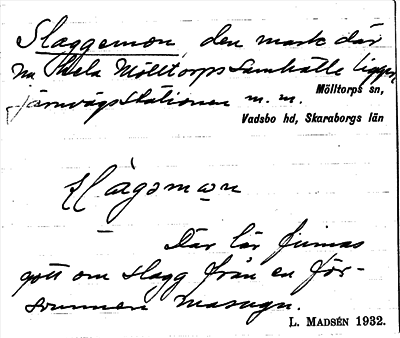 Slaggemon, den mark där
nu hela Mölltorps samhälle ligger,
järnvägsstationen m. m.
Mölltorps sn,
Vadsbo hd, Skaraborgs län
Där lär finnas
gott om slagg från en för-
svunnen masugn.
L. MADSÉN 1932.